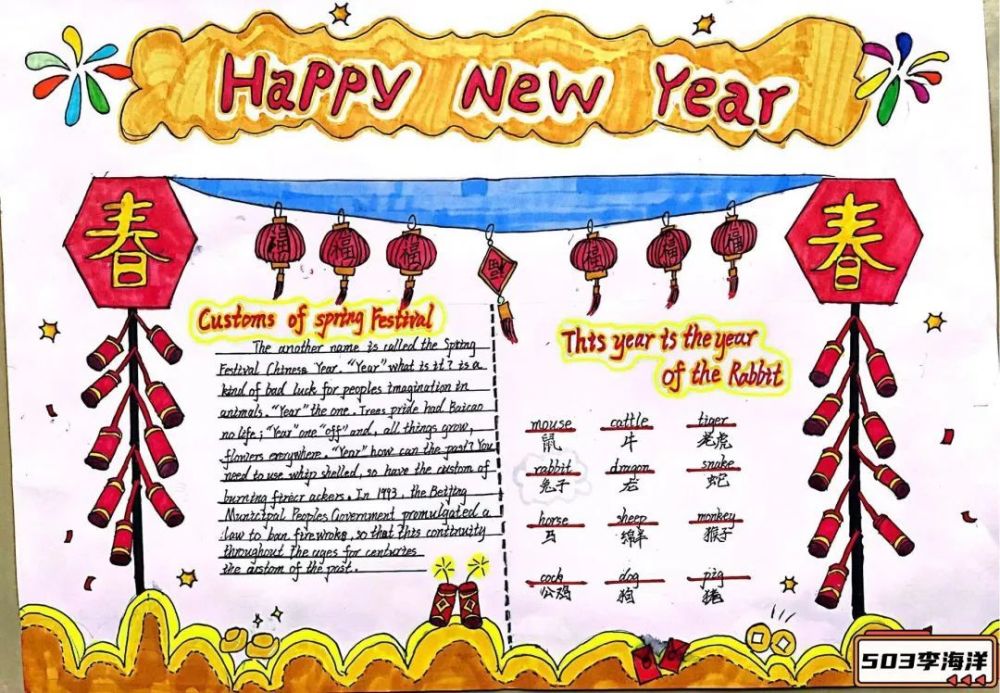 Happy New Year
春
春
福
福
福
福
福
福
福
Customs of spring Festival
The another name is called the Spring
Festival Chinese Year. "Year" what is it? is a
kind of bad luck for peoples imagination in
animals. "Year" the one. Trees pride had Baicao
no life; "Year" one "off" and, all things grow,
flowers everywhere. "Year" how can the past? You
need to use whip shelled, so have the custom of
burning firecr ackers. In 1993, the Beijing
Municipal Peoples Government promulgated a
law to ban fireworks, so that this continuity
throughout the ages for centuries
the custom of the past.
This year is the year
of the Rabbit
mouse cattle tiger
鼠 牛 老虎
rabbit dragon snake
兔子 龙 蛇
horse sheep monkey
马 绵羊 猴子
cock dog pig
公鸡 狗 猪
503李海洋